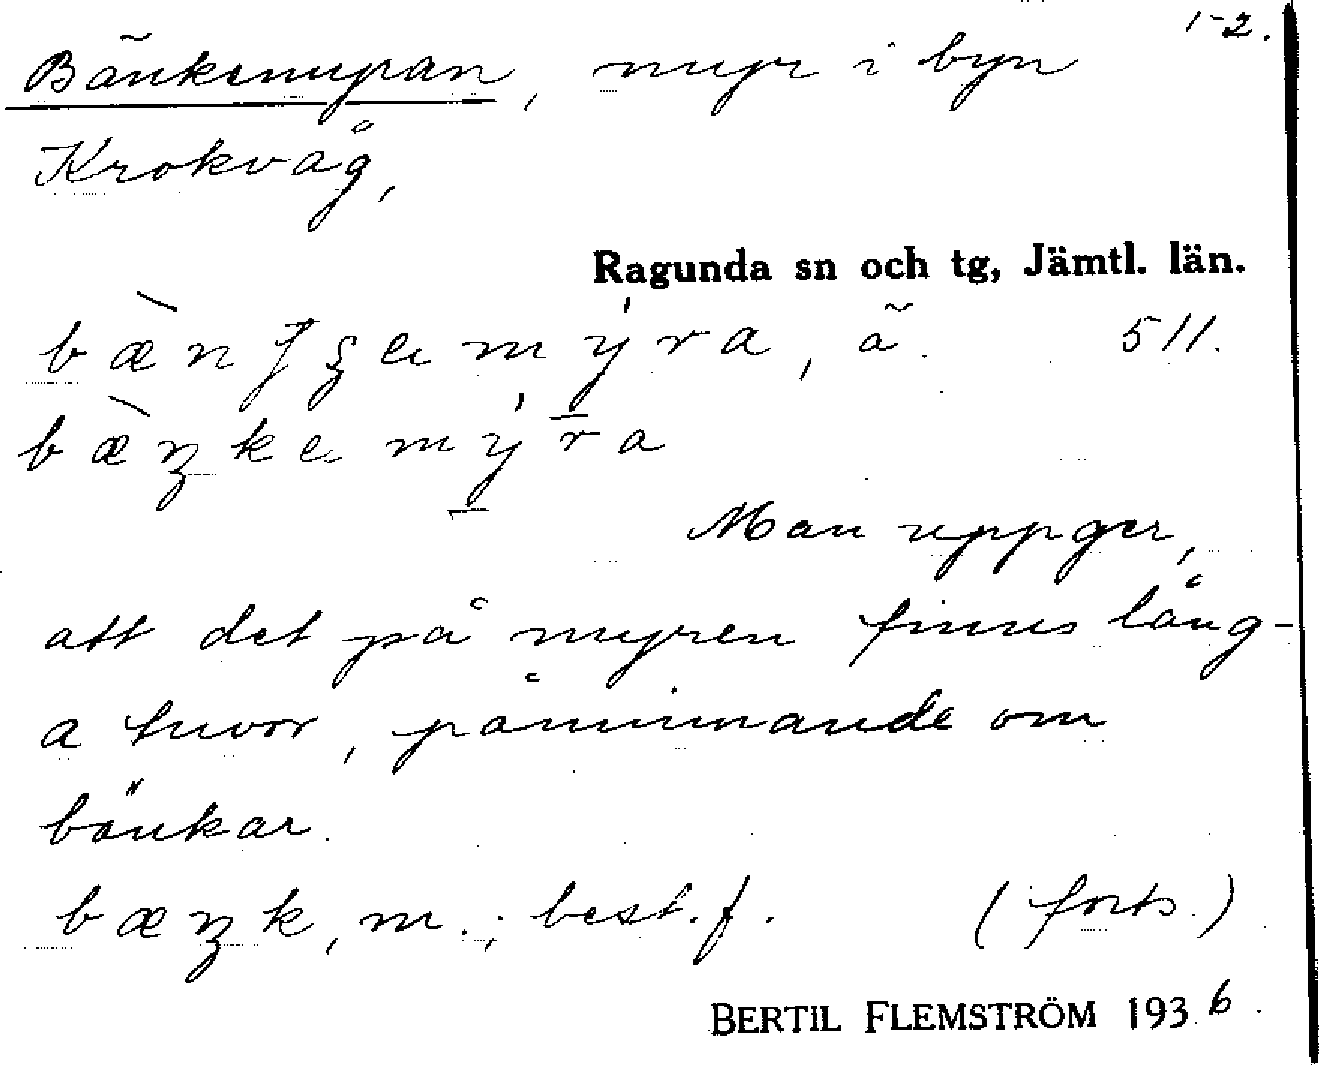 1-2.
Bänkemyran, myr i byn
Krokvåg,
Ragunda sn och tg, Jämtl. län.
511.
Man uppger,
att det på myren finns lång-
a tuvor, påminnande om
bänkar.
bæŋk, m.; best. f. (forts.)
BERTIL FLEMSTRÖM 1936.